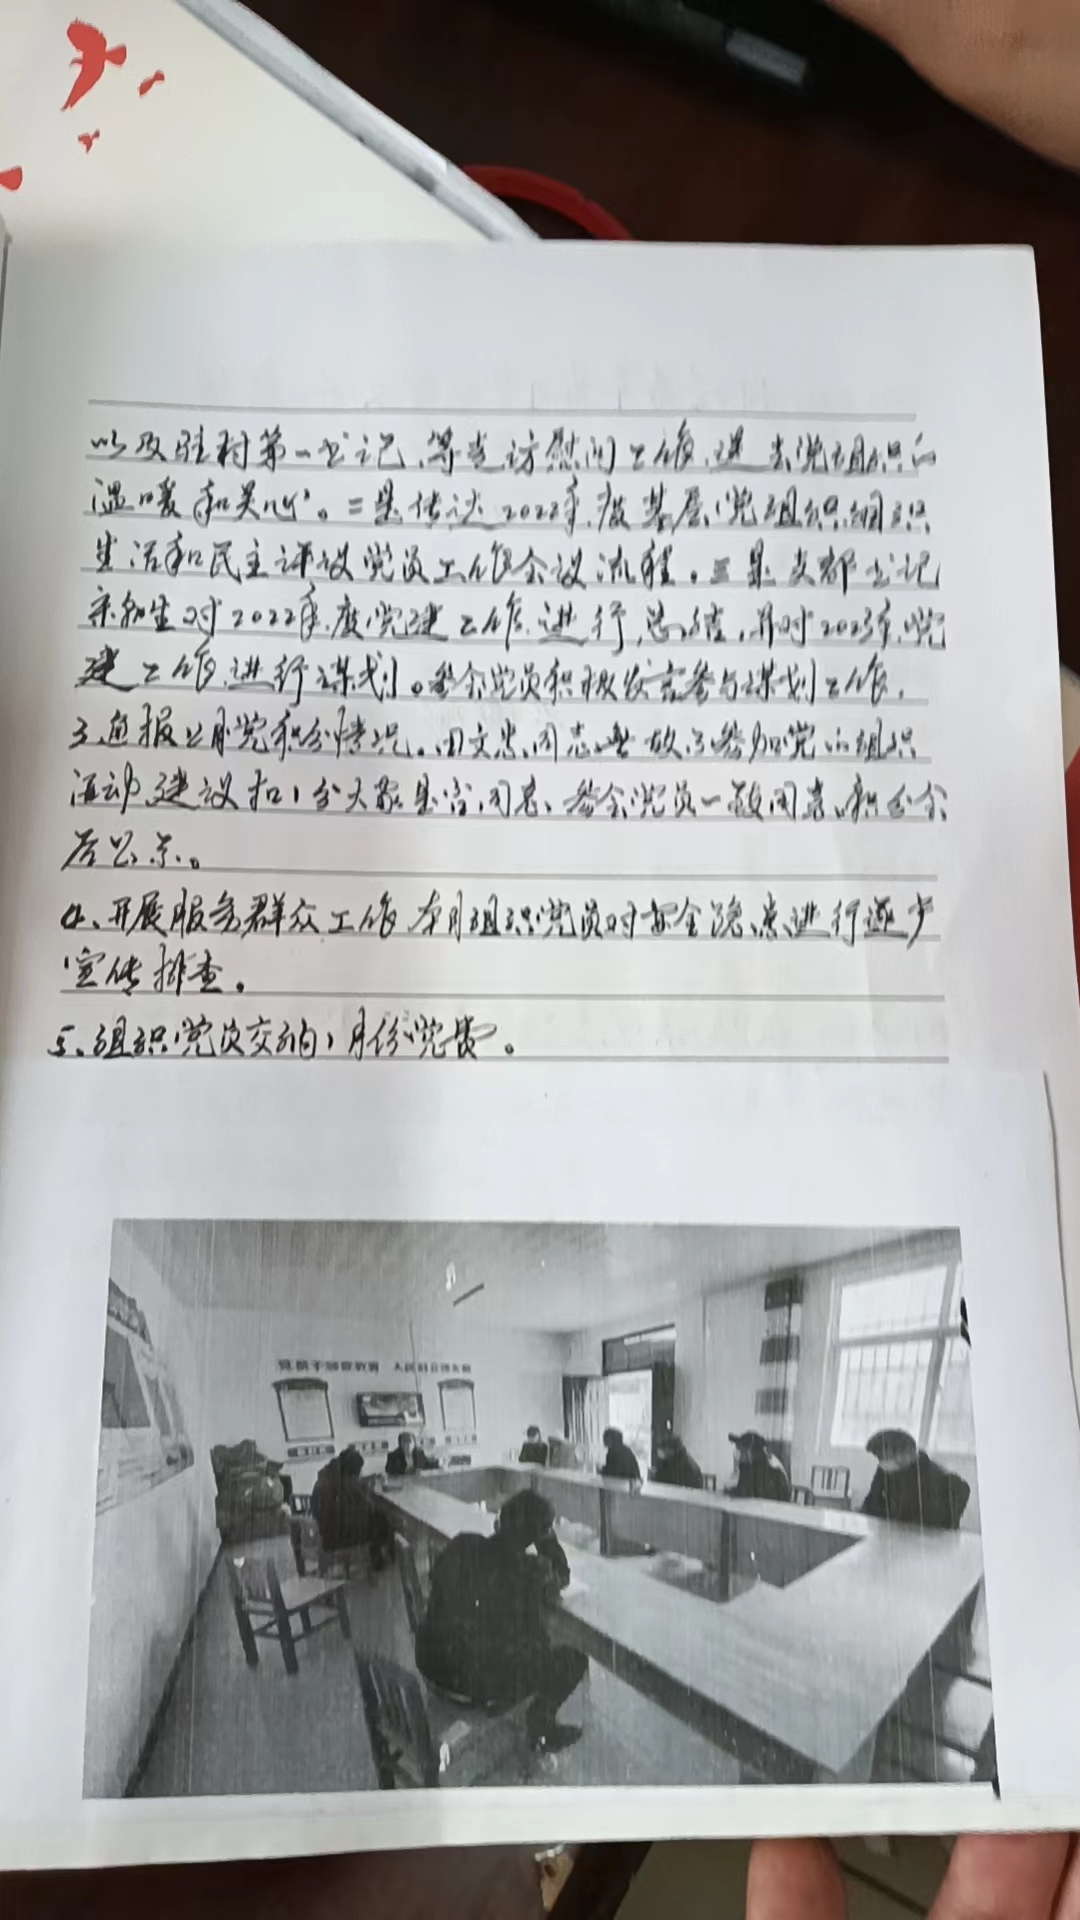 以及驻村第一书记、等走访慰问工作,送去党组织的
温暖和关心。二是传达2022年度基层党组织组织
生活和民主评议党员工作会议流程。三是支部书记
生对2022年度党建工作进行总结,并对2023年党
建工作进行谋划。参会党员积极发言参与谋划工作。
3、通报12月党积分情况。田文忠同志无故不参加党的组织
活动建议扣1分大家是否同意、参会党员一致同意。积分会
后公示。
4、开展服务群众工作 本月组织党员对安全隐患进行逐户
宣传排查。
5、组织党员交纳1月份党费。